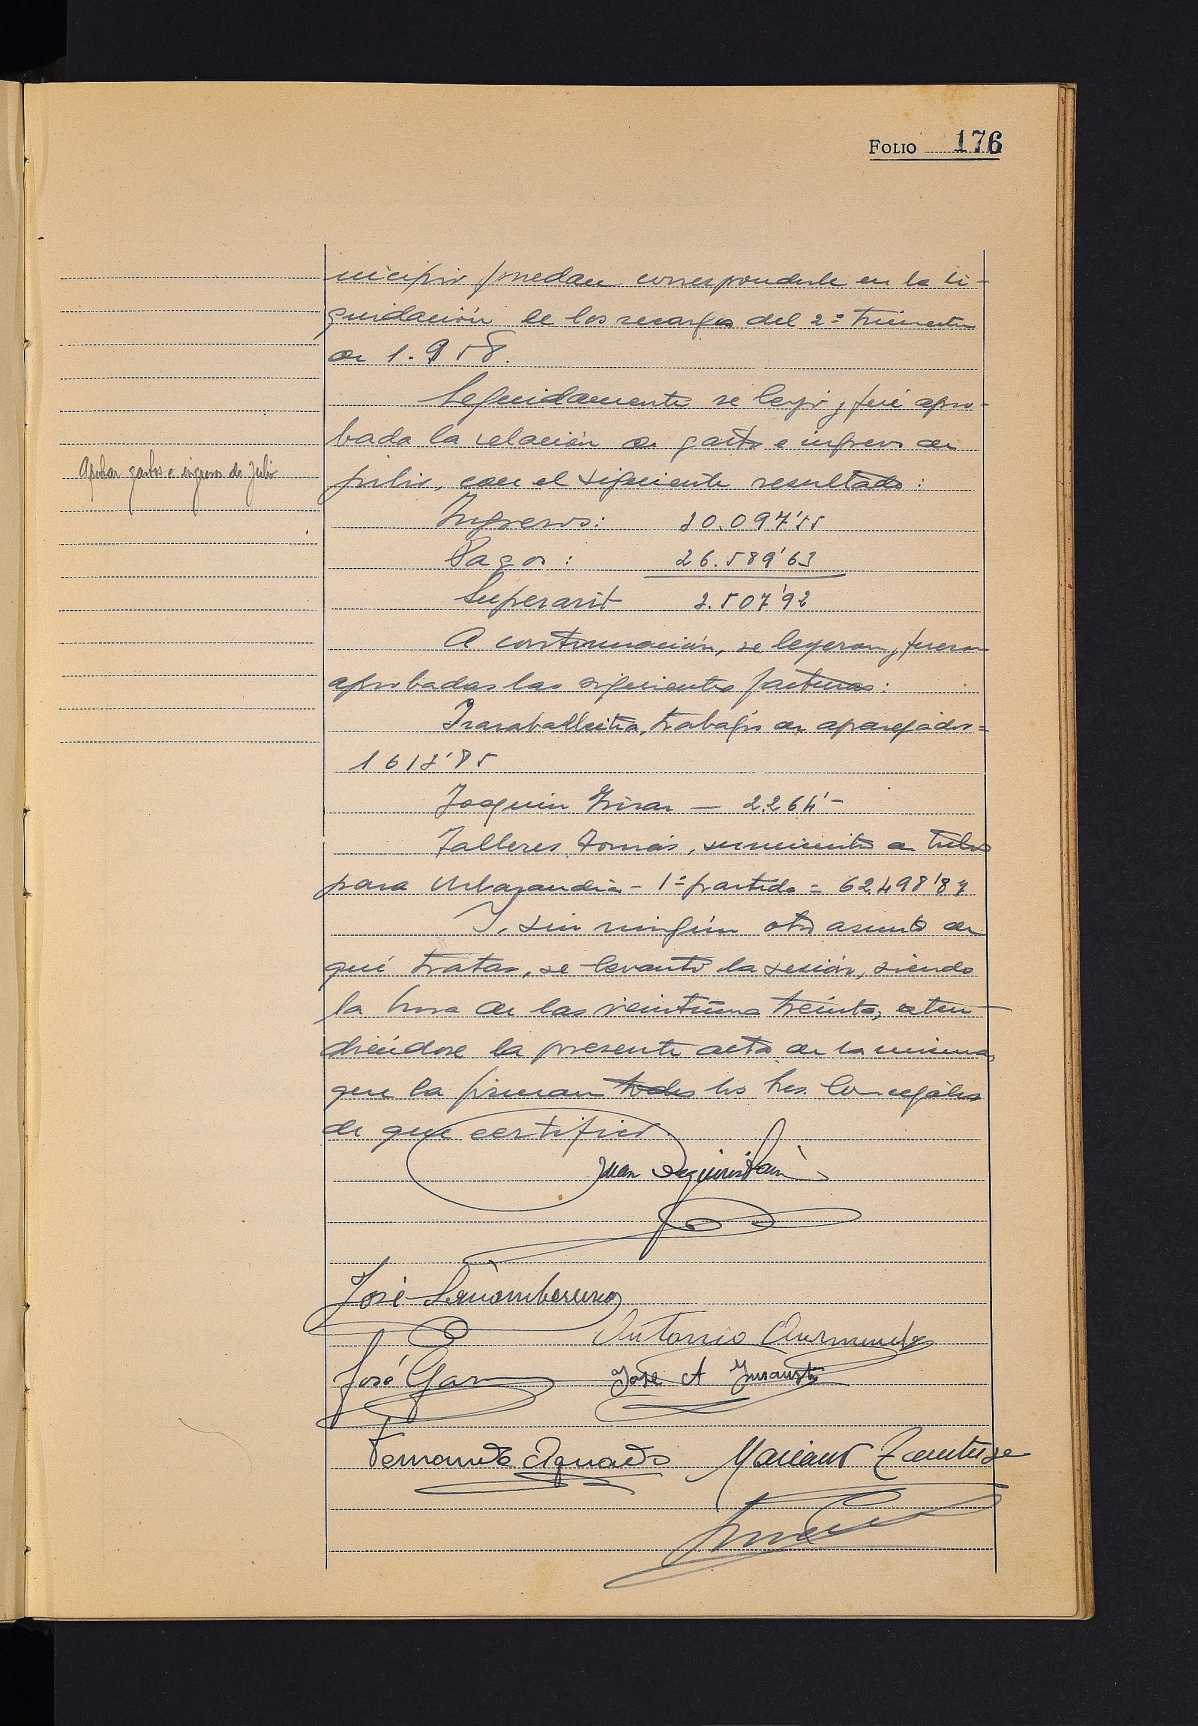 FOLIO 176
nicipio puedan corresponderle en la li-
quidación de los recargos del 2º trimestre
de 1.958.
Seguidamente se leyó y fué apro-
bada la relación de gastos e ingresos de
Aprobar gastos e ingresos de Julio
julio, con el siguiente resultado:
Ingresos: 30.097'55
Pagos: 26.589'63
Superavit 3.507'92
A continuación, se leyeron y fueron
aprobadas las siguientes facturas:
trabajos de aparejador=
1613'85
Joaquin — 2.264'-
Talleres Tomás, suministro de tubos
para Urbazandia - 1ª partida = 62.498'84
Y, sin ningún otro asunto de
qué tratar, se levantó la sesión, siendo
la hora de las veintiuna treinta, exten-
diéndose la presente acta de la misma,
que la firman todos los Sres. Concejales
de que certifico
Juan
José
Antonio
José José A
Fernando Aguado Mariano